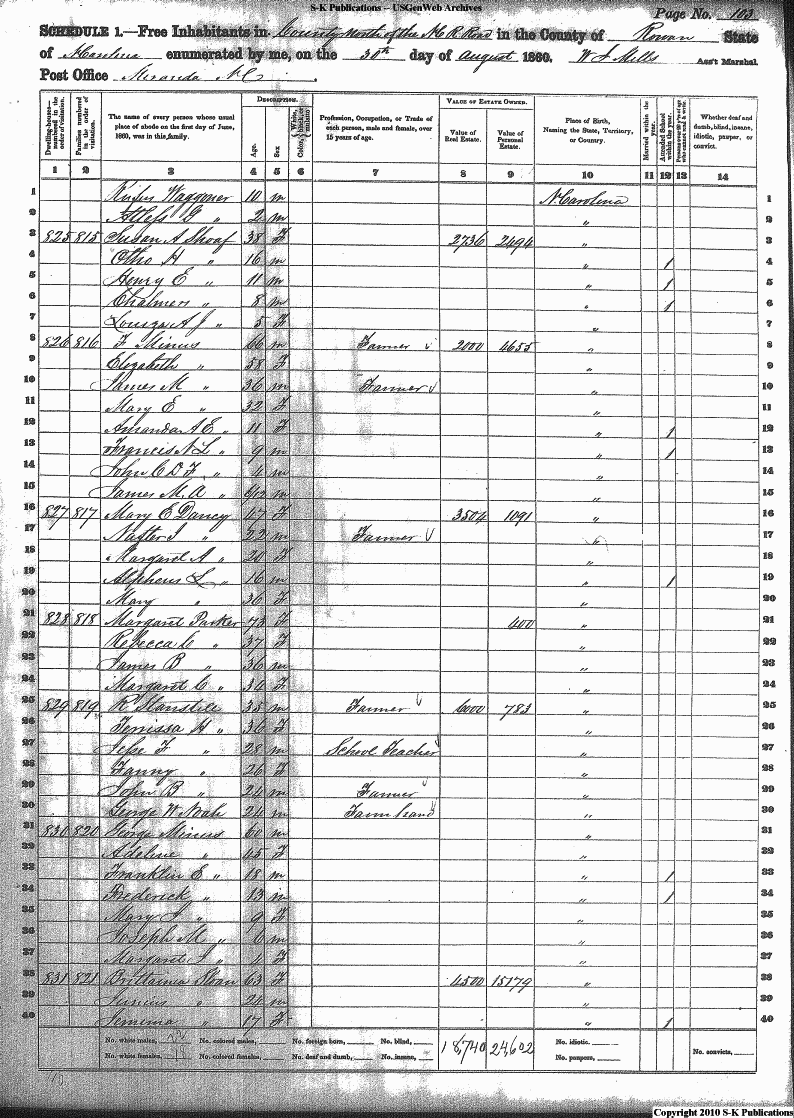 S-K Publications – USGenWeb Archives
Page No. 103
SCHEDULE 1.—Free Inhabitants in County North of the N C R Road in the County of Rowan State
of N Carolina enumerated by me, on the 30th day of August 1860. W J Mills Ass't Marshal
Post Office Miranda N C
Dwelling-houses— numbered in the order of visitation. Families numbered in the order of visitation. The name of every person whose usual place of abode on the first day of June, 1860, was in this family. DESCRIPTION. Age. Sex Color, Profession, Occupation, or Trade of each person, male and female, over 15 years of age. VALUE OF ESTATE OWNED. Value of Real Estate. Value of Personal Estate. Place of Birth, Naming the State, Territory, or Country. Married within the year. Attended School within the year. Whether deaf and dumb, blind, insane, idiotic, pauper, or convict.
1 2 3 4 5 6 7 8 9 10 11 12 13 14
1 Rufus Waggoner 10 m N. Carolina 1
2 G " 2 m " 2
3 825 815 Susan A Shoaf 38 F 2736 2494 " 3
4 Otho H " 16 m " 1 4
5 Henry E " 11 m " 1 5
6 Chalmers " 8 m " 1 6
7 Louiza A J " 5 F " 7
8 826 816 F Minus 66 m Farmer 2000 4655 " 8
9 Elizabeth " 58 F " 9
10 James M " 36 m Farmer " 10
11 Mary E " 32 F " 11
12 Amanda A E " 11 F " 1 12
13 Francis A L " 9 m " 1 13
14 John C D F " 4 m " 14
15 James M. A " 6/12 m " 15
16 827 817 Mary C Dancy 47 F 3504 1091 " 16
17 J " 22 m Farmer " 17
18 Margaret A " 20 F " 18
19 Alpheus L " 16 m " 1 19
20 Mary " 36 F " 20
21 828 818 Margaret Parker 73 F 400 " 21
22 Rebecca C " 37 F " 22
23 James B " 36 m " 23
24 Margaret C " 34 F " 24
25 829 819 R 35 m Farmer 6000 783 " 25
26 H " 36 F " 26
27 Jesse F " 28 m School Teacher " 27
28 Fanny " 26 F " 28
29 John B " 24 m Farmer " 29
30 George W Noah 24 m Farm hand " 30
31 830 820 George Minus 60 m " 31
32 Adeline " 45 F " 32
33 Franklin E " 18 m " 1 33
34 Frederick " 13 m " 1 34
35 Mary J " 9 F " 35
36 Joseph M " 6 m " 36
37 Margaret J " 4 F " 37
38 831 821 Brittania Sloan 63 F 4500 15179 " 38
39 Junius " 24 m " 39
40 Jemima " 17 F " 1 40
No. white males, 22 No. colored males, No. foreign born, No. blind, 18,740 24,602 No. idiotic.
No. white females, No. colored females, No. deaf and dumb, No. insane, No. paupers, No. convicts,
Copyright 2010 S-K Publications